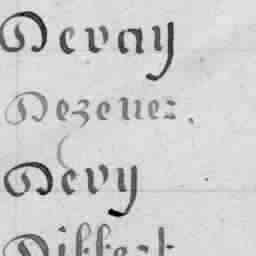 Devay
Dezenez.
Devy